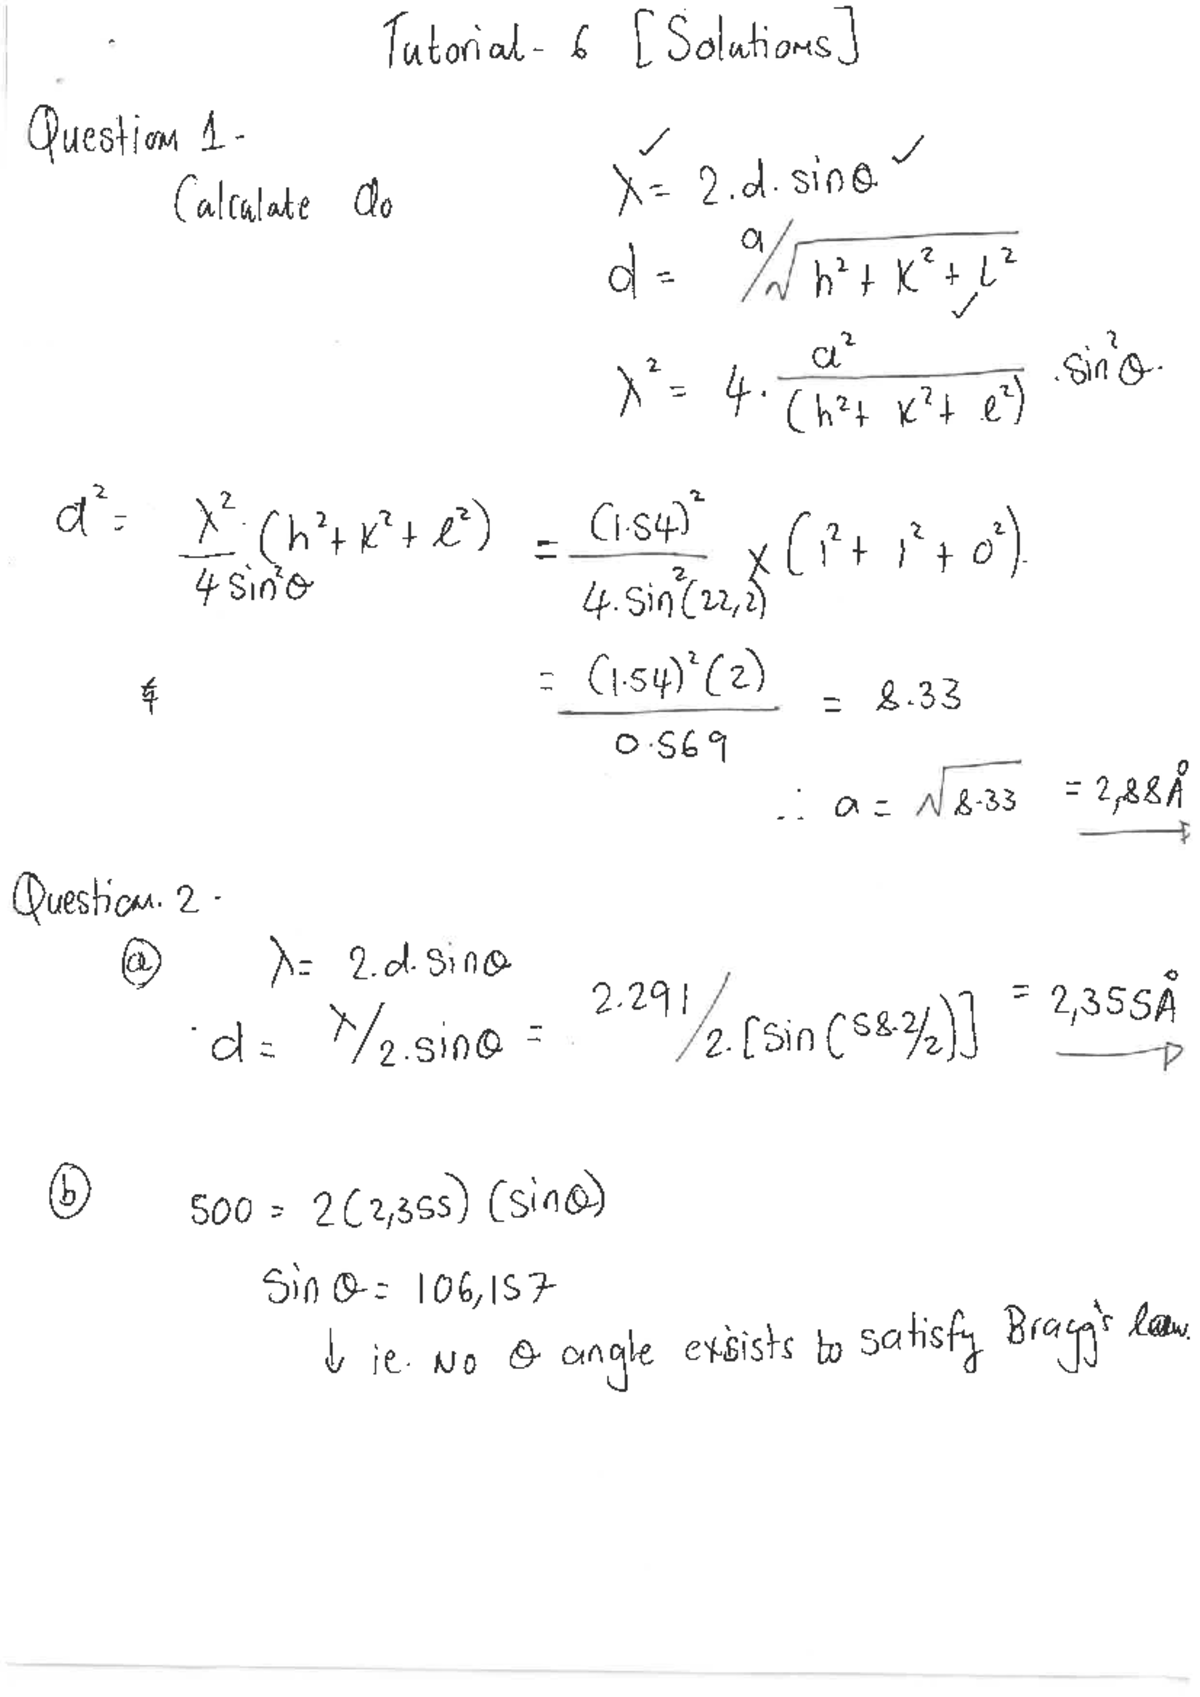 Tutorial - 6 [Solutions]
Question 1 -
Calculate a₀
λ = 2.d.sinθ
d = a/√(h² + k² + l²)
λ² = 4. a²/(h² + k² + l²) .sin²θ.
a² = λ²/(4 sin²θ) . (h² + k² + l²) = (1.54)²/(4.sin²(22,2)) x (1² + 1² + 0²).
= (1.54)²(2)/0.569 = 8.33
∴ a = √8.33 = 2,88Å
Question. 2 -
(a) λ = 2.d.sinθ
d = λ/2.sinθ = 2.291/2.[sin(58.2/2)] = 2,355Å
(b) 500 = 2(2,355)(sinθ)
Sinθ = 106,157
↓ ie. NO θ angle exsists to satisfy Bragg's law.